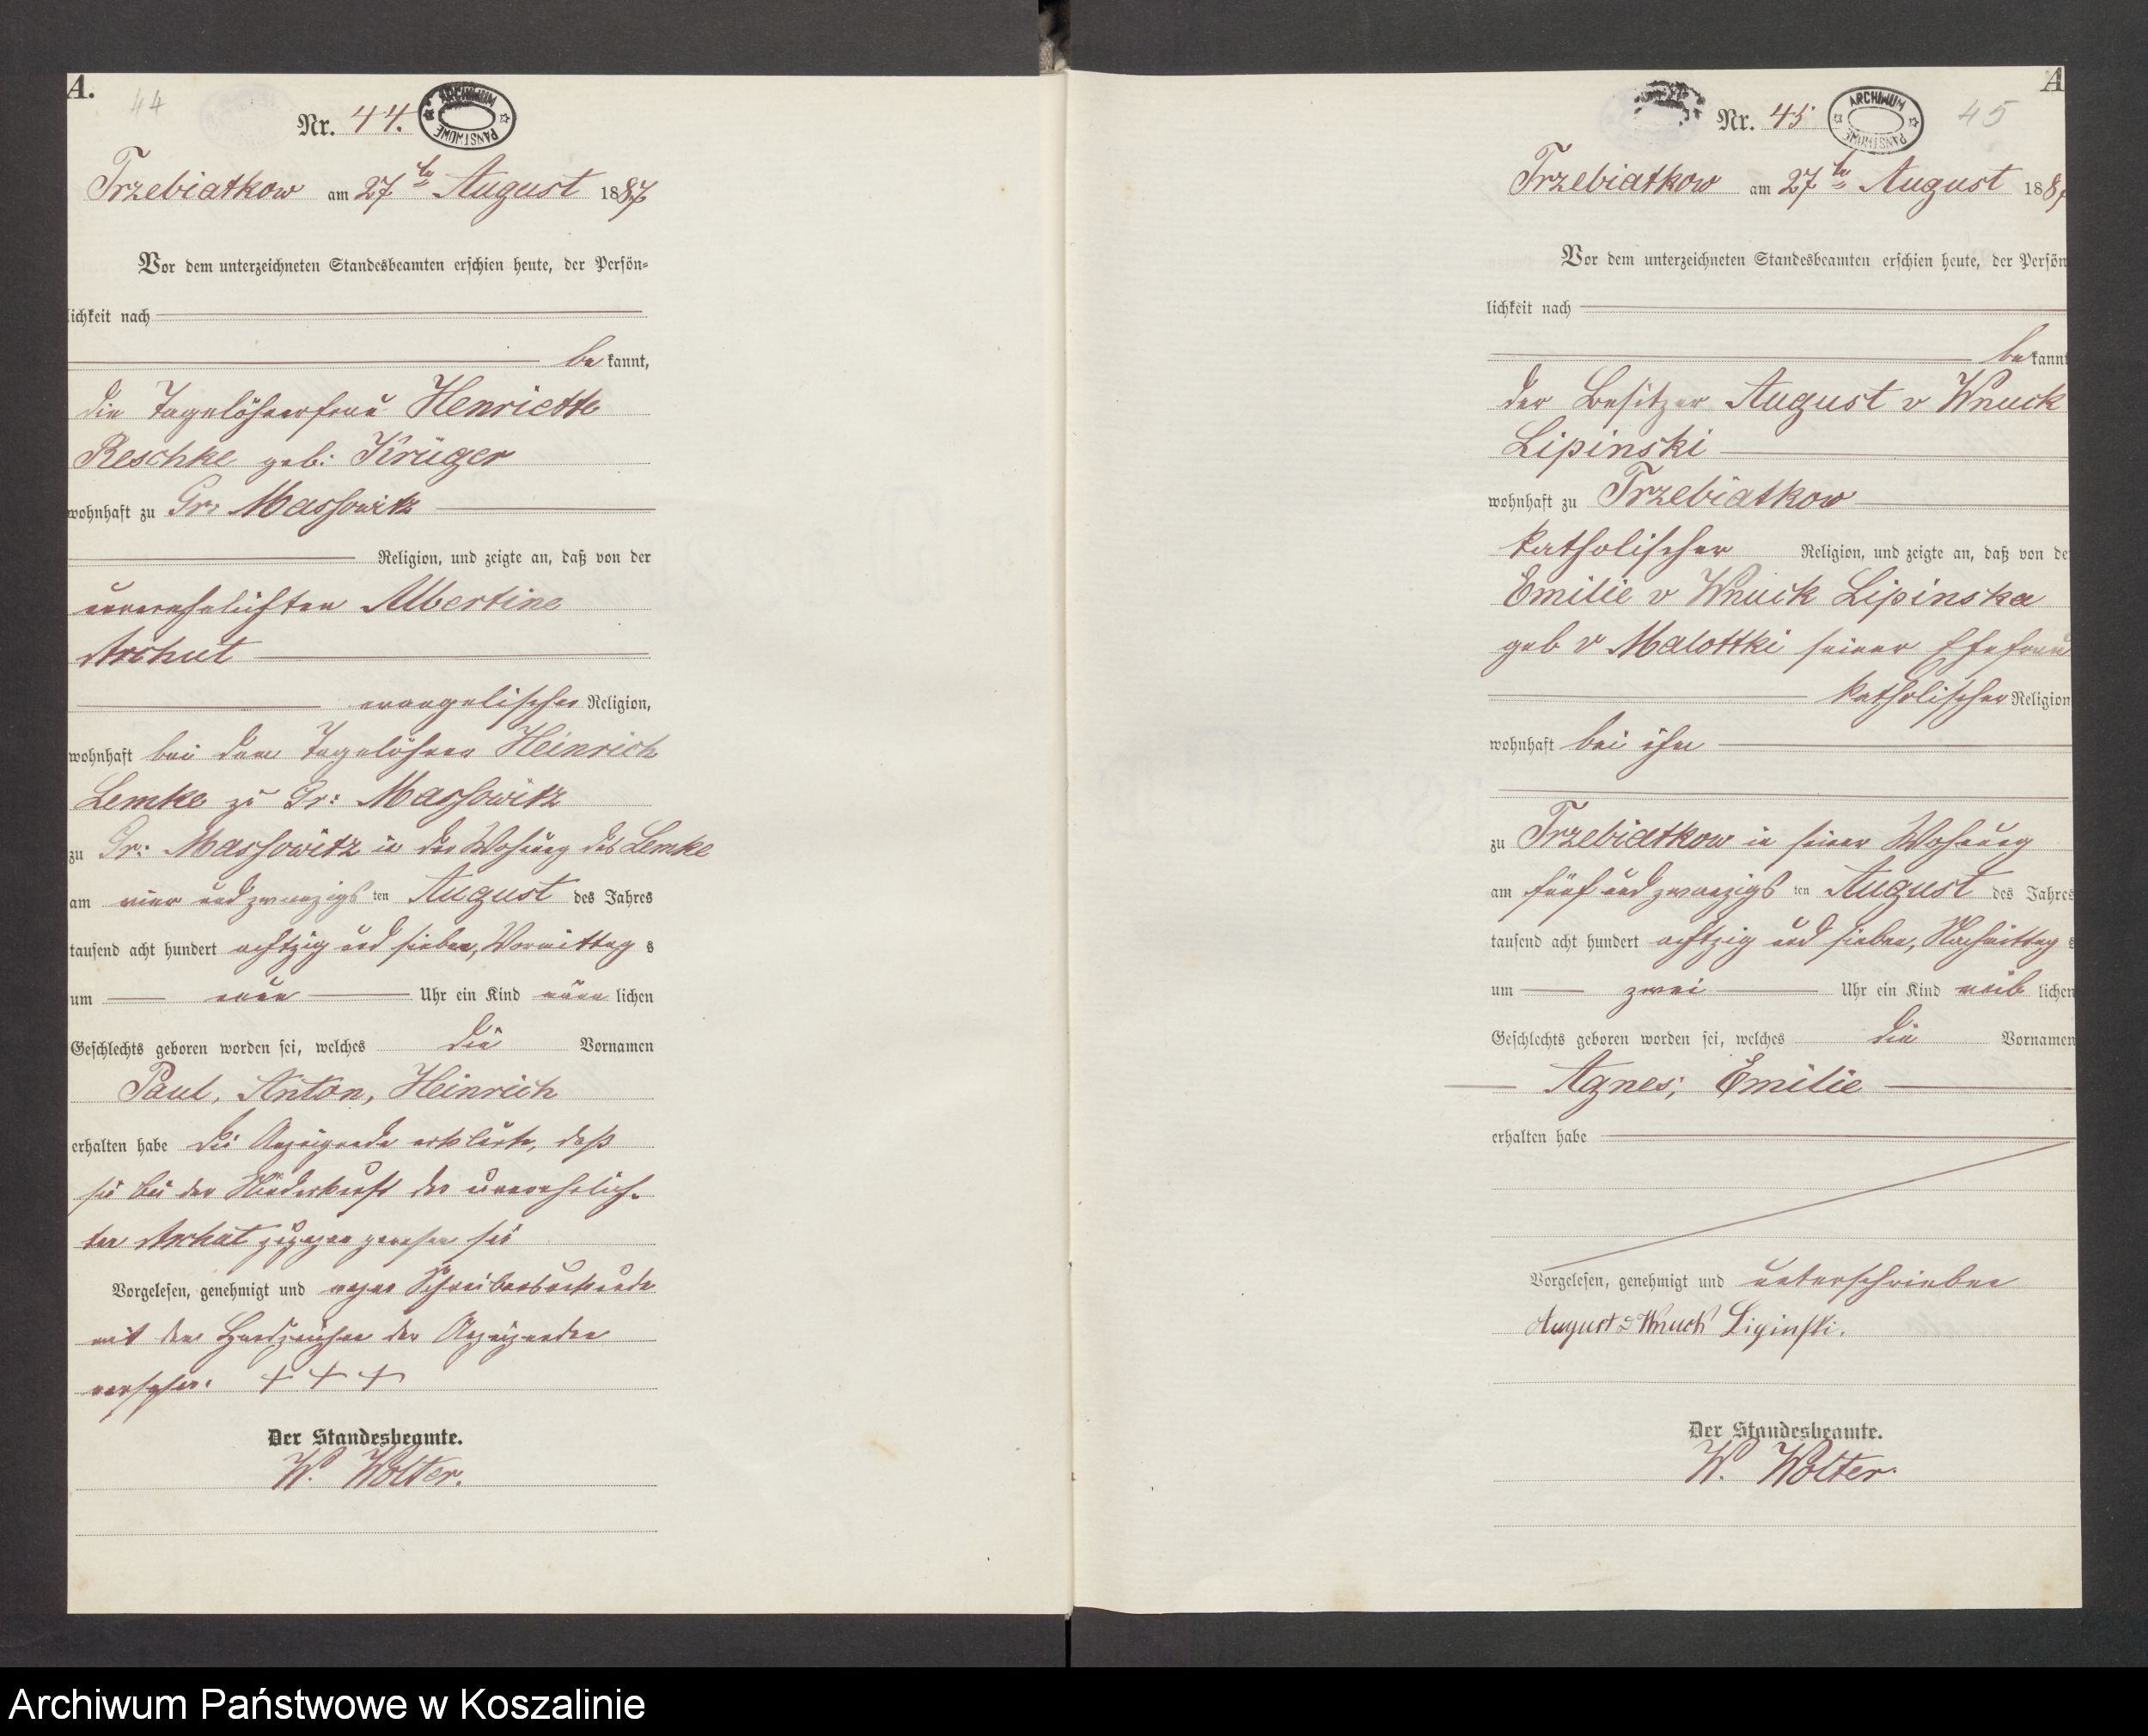 A.
44
Nr. 44.
ARCHIWUM PAŃSTWOWE
Trzebiatkow am 27ten August 1887
Vor dem unterzeichneten Standesbeamten erschien heute, der Persön-
lichkeit nach
be kannt,
die Tagelöhnerfrau Henriette
Reschke geb: Krüger
wohnhaft zu Gr: Massowitz
Religion, und zeigte an, daß von der
unverehelichten Albertine
Archut
evangelischer Religion,
wohnhaft bei dem Tagelöhner Heinrich
Lemke zu Gr: Massowitz
zu Gr: Massowitz in der Wohnung des Lemke
am vier und zwanzigs ten August des Jahres
tausend acht hundert achtzig und sieben, Vormittag s
um neun Uhr ein Kind männ lichen
Geschlechts geboren worden sei, welches die Vornamen
Paul, Anton, Heinrich
erhalten habe Die Anzeigende erklärte, daß
sie bei der Niederkunft der unverehelich-
ten Archut zugegen gewesen sei
Vorgelesen, genehmigt und wegen Schreibensunkunde
mit dem Handzeichen der Anzeigenden
versehen. + + +
Der Standesbeamte.
W. Wolter.
A
45
Nr. 45
ARCHIWUM PAŃSTWOWE
Trzebiatkow am 27ten August 188
Vor dem unterzeichneten Standesbeamten erschien heute, der Persön
lichkeit nach
be kannt
der Besitzer August v Wnuck
Lipinski
wohnhaft zu Trzebiatkow
katholischer Religion, und zeigte an, daß von de
Emilie v Wnuck Lipinska
geb v Malottki seiner Ehefrau
katholischer Religion
wohnhaft bei ihm
zu Trzebiatkow in seiner Wohnung
am fünf und zwanzigs ten August des Jahres
tausend acht hundert achtzig und sieben, Nachmittag s
um zwei Uhr ein Kind weib lichen
Geschlechts geboren worden sei, welches die Vornamen
Agnes, Emilie
erhalten habe
Vorgelesen, genehmigt und unterschrieben
August v Wnuck Lipinski.
Der Standesbeamte.
W. Wolter.
Archiwum Państwowe w Koszalinie